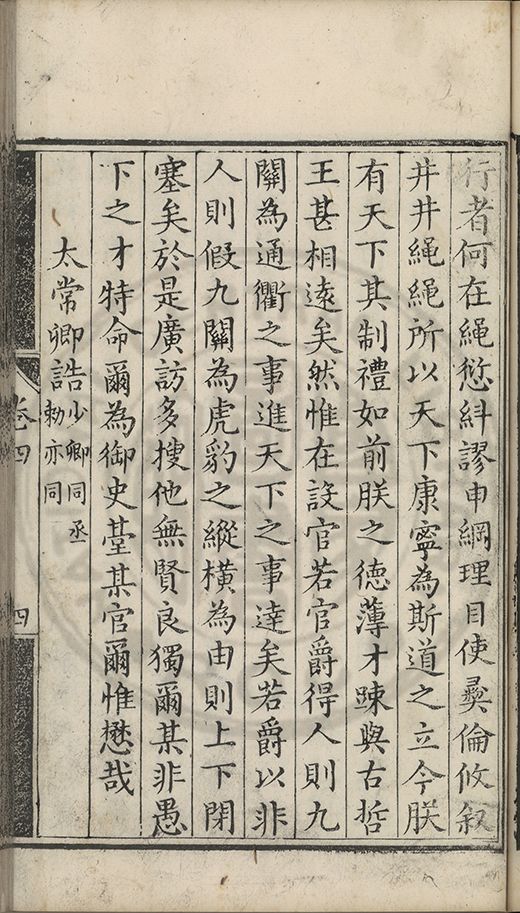 行者何在繩愆糾謬申綱理目使彝倫攸叙
井井繩繩所以天下康寧為斯道之立今朕
有天下其制禮如前朕之德薄才踈與古哲
王甚相遠矣然惟在設官若官爵得人則九
關為通衢之事進天下之事達矣若爵以非
人則假九關為虎豹之縱橫為由則上下閉
塞矣於是廣訪多搜他無賢良獨爾某非愚
下之才特命爾為御史䑓某官爾惟懋哉
太常卿誥少卿同丞
勅亦同
卷四
四